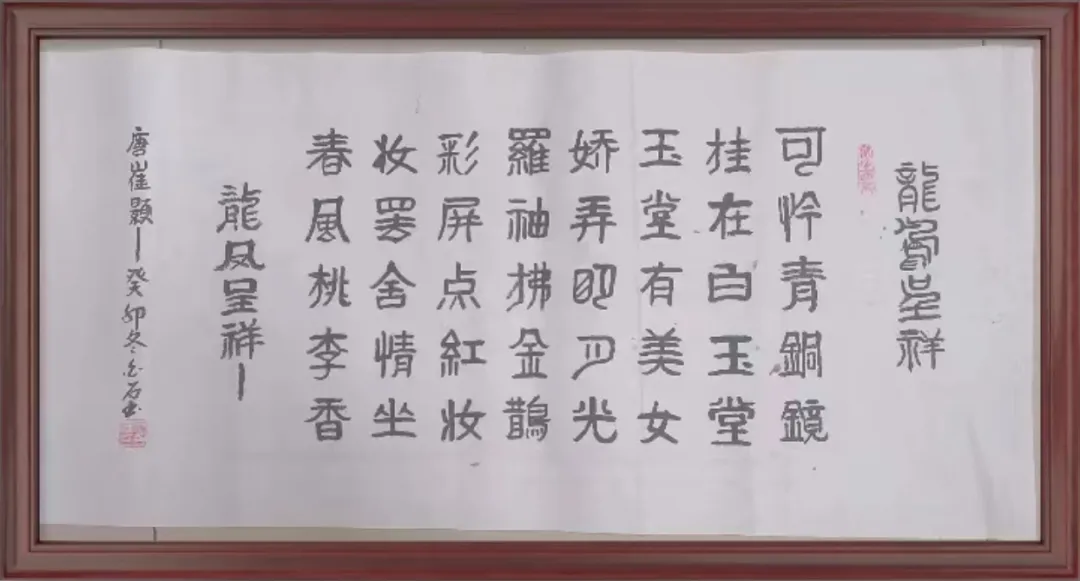 龍鳳呈祥
可怜青銅鏡
挂在白玉堂
玉堂有美女
娇弄明月光
羅袖拂金鵲
彩屏点紅妆
妆罢含情坐
春風桃李香
龍凤呈祥—
唐崔顥—癸卯冬石书